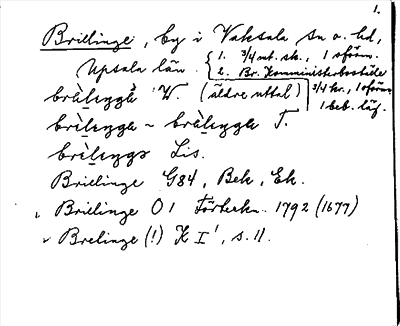 1.
Brillinge, by i Vaksala sn o. hd,
Upsala län. { 1. 3/4 mt. sk., 1 oförm.
2. Br. Komministerboställe
3/4 kr., 1 oförm.
1 beb. läg.
brä̀lı̣ngà W. (äldre uttal)
brı̀lıṇga ~ brä̀lıṇga T.
brı̀lıṇgə Lis.
Brillinge G84, Bek, Ek.
Brillinge O1 Förteckn. 1792 (1677)
Brelinge (!) K I', s. 11.